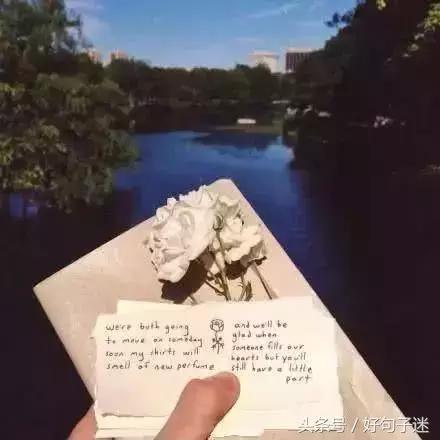 we're both going
to move on someday
soon my shirts will
smell of new perfume
and we'll be
glad when
someone fills our
hearts but you'll
still have a little
part
头条号 / 好句子迷